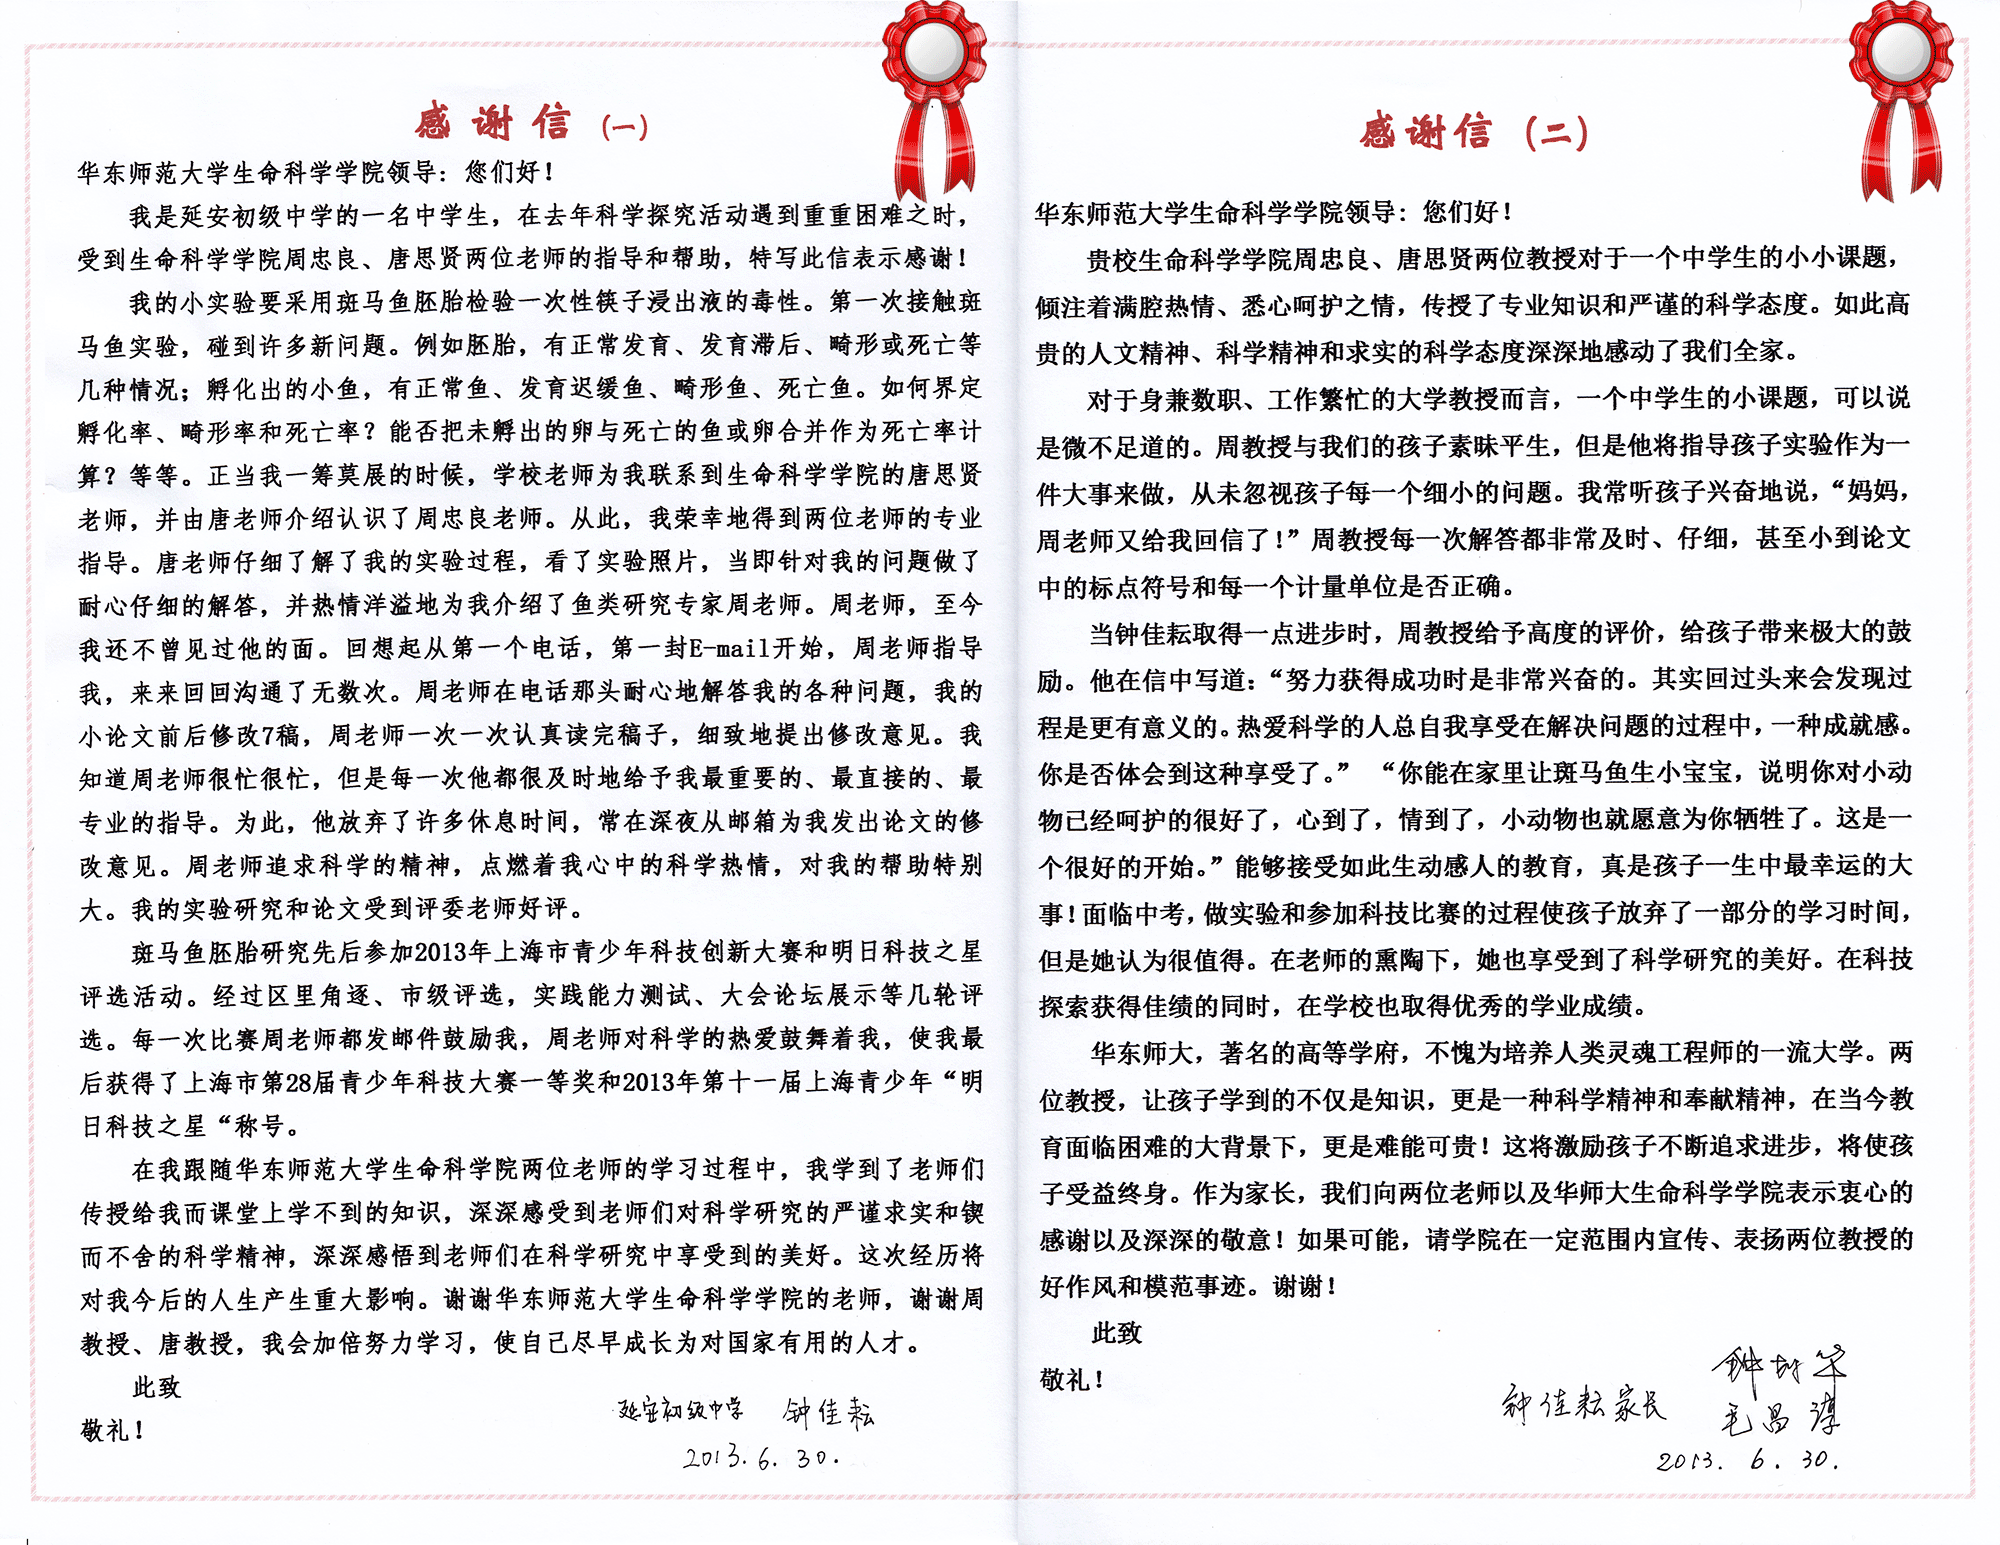 感谢信 (一)
华东师范大学生命科学学院领导：您们好！
我是延安初级中学的一名中学生，在去年科学探究活动遇到重重困难之时，
受到生命科学学院周忠良、唐思贤两位老师的指导和帮助，特写此信表示感谢！
我的小实验要采用斑马鱼胚胎检验一次性筷子浸出液的毒性。第一次接触斑
马鱼实验，碰到许多新问题。例如胚胎，有正常发育、发育滞后、畸形或死亡等
几种情况；孵化出的小鱼，有正常鱼、发育迟缓鱼、畸形鱼、死亡鱼。如何界定
孵化率、畸形率和死亡率？能否把未孵出的卵与死亡的鱼或卵合并作为死亡率计
算？等等。正当我一筹莫展的时候，学校老师为我联系到生命科学学院的唐思贤
老师，并由唐老师介绍认识了周忠良老师。从此，我荣幸地得到两位老师的专业
指导。唐老师仔细了解了我的实验过程，看了实验照片，当即针对我的问题做了
耐心仔细的解答，并热情洋溢地为我介绍了鱼类研究专家周老师。周老师，至今
我还不曾见过他的面。回想起从第一个电话，第一封E-mail开始，周老师指导
我，来来回回沟通了无数次。周老师在电话那头耐心地解答我的各种问题，我的
小论文前后修改7稿，周老师一次一次认真读完稿子，细致地提出修改意见。我
知道周老师很忙很忙，但是每一次他都很及时地给予我最重要的、最直接的、最
专业的指导。为此，他放弃了许多休息时间，常在深夜从邮箱为我发出论文的修
改意见。周老师追求科学的精神，点燃着我心中的科学热情，对我的帮助特别
大。我的实验研究和论文受到评委老师好评。
斑马鱼胚胎研究先后参加2013年上海市青少年科技创新大赛和明日科技之星
评选活动。经过区里角逐、市级评选，实践能力测试、大会论坛展示等几轮评
选。每一次比赛周老师都发邮件鼓励我，周老师对科学的热爱鼓舞着我，使我最
后获得了上海市第28届青少年科技大赛一等奖和2013年第十一届上海青少年“明
日科技之星“称号。
在我跟随华东师范大学生命科学院两位老师的学习过程中，我学到了老师们
传授给我而课堂上学不到的知识，深深感受到老师们对科学研究的严谨求实和锲
而不舍的科学精神，深深感悟到老师们在科学研究中享受到的美好。这次经历将
对我今后的人生产生重大影响。谢谢华东师范大学生命科学学院的老师，谢谢周
教授、唐教授，我会加倍努力学习，使自己尽早成长为对国家有用的人才。
此致
敬礼！
延安初级中学 钟佳耘
2013.6.30.
感谢信 (二)
华东师范大学生命科学学院领导：您们好！
贵校生命科学学院周忠良、唐思贤两位教授对于一个中学生的小小课题，
倾注着满腔热情、悉心呵护之情，传授了专业知识和严谨的科学态度。如此高
贵的人文精神、科学精神和求实的科学态度深深地感动了我们全家。
对于身兼数职、工作繁忙的大学教授而言，一个中学生的小课题，可以说
是微不足道的。周教授与我们的孩子素昧平生，但是他将指导孩子实验作为一
件大事来做，从未忽视孩子每一个细小的问题。我常听孩子兴奋地说，“妈妈，
周老师又给我回信了！”周教授每一次解答都非常及时、仔细，甚至小到论文
中的标点符号和每一个计量单位是否正确。
当钟佳耘取得一点进步时，周教授给予高度的评价，给孩子带来极大的鼓
励。他在信中写道：“努力获得成功时是非常兴奋的。其实回过头来会发现过
程是更有意义的。热爱科学的人总自我享受在解决问题的过程中，一种成就感。
你是否体会到这种享受了。” “你能在家里让斑马鱼生小宝宝，说明你对小动
物已经呵护的很好了，心到了，情到了，小动物也就愿意为你牺牲了。这是一
个很好的开始。”能够接受如此生动感人的教育，真是孩子一生中最幸运的大
事！面临中考，做实验和参加科技比赛的过程使孩子放弃了一部分的学习时间，
但是她认为很值得。在老师的熏陶下，她也享受到了科学研究的美好。在科技
探索获得佳绩的同时，在学校也取得优秀的学业成绩。
华东师大，著名的高等学府，不愧为培养人类灵魂工程师的一流大学。两
位教授，让孩子学到的不仅是知识，更是一种科学精神和奉献精神，在当今教
育面临困难的大背景下，更是难能可贵！这将激励孩子不断追求进步，将使孩
子受益终身。作为家长，我们向两位老师以及华师大生命科学学院表示衷心的
感谢以及深深的敬意！如果可能，请学院在一定范围内宣传、表扬两位教授的
好作风和模范事迹。谢谢！
此致
敬礼！
钟佳耘家长
毛昌
2013. 6. 30.